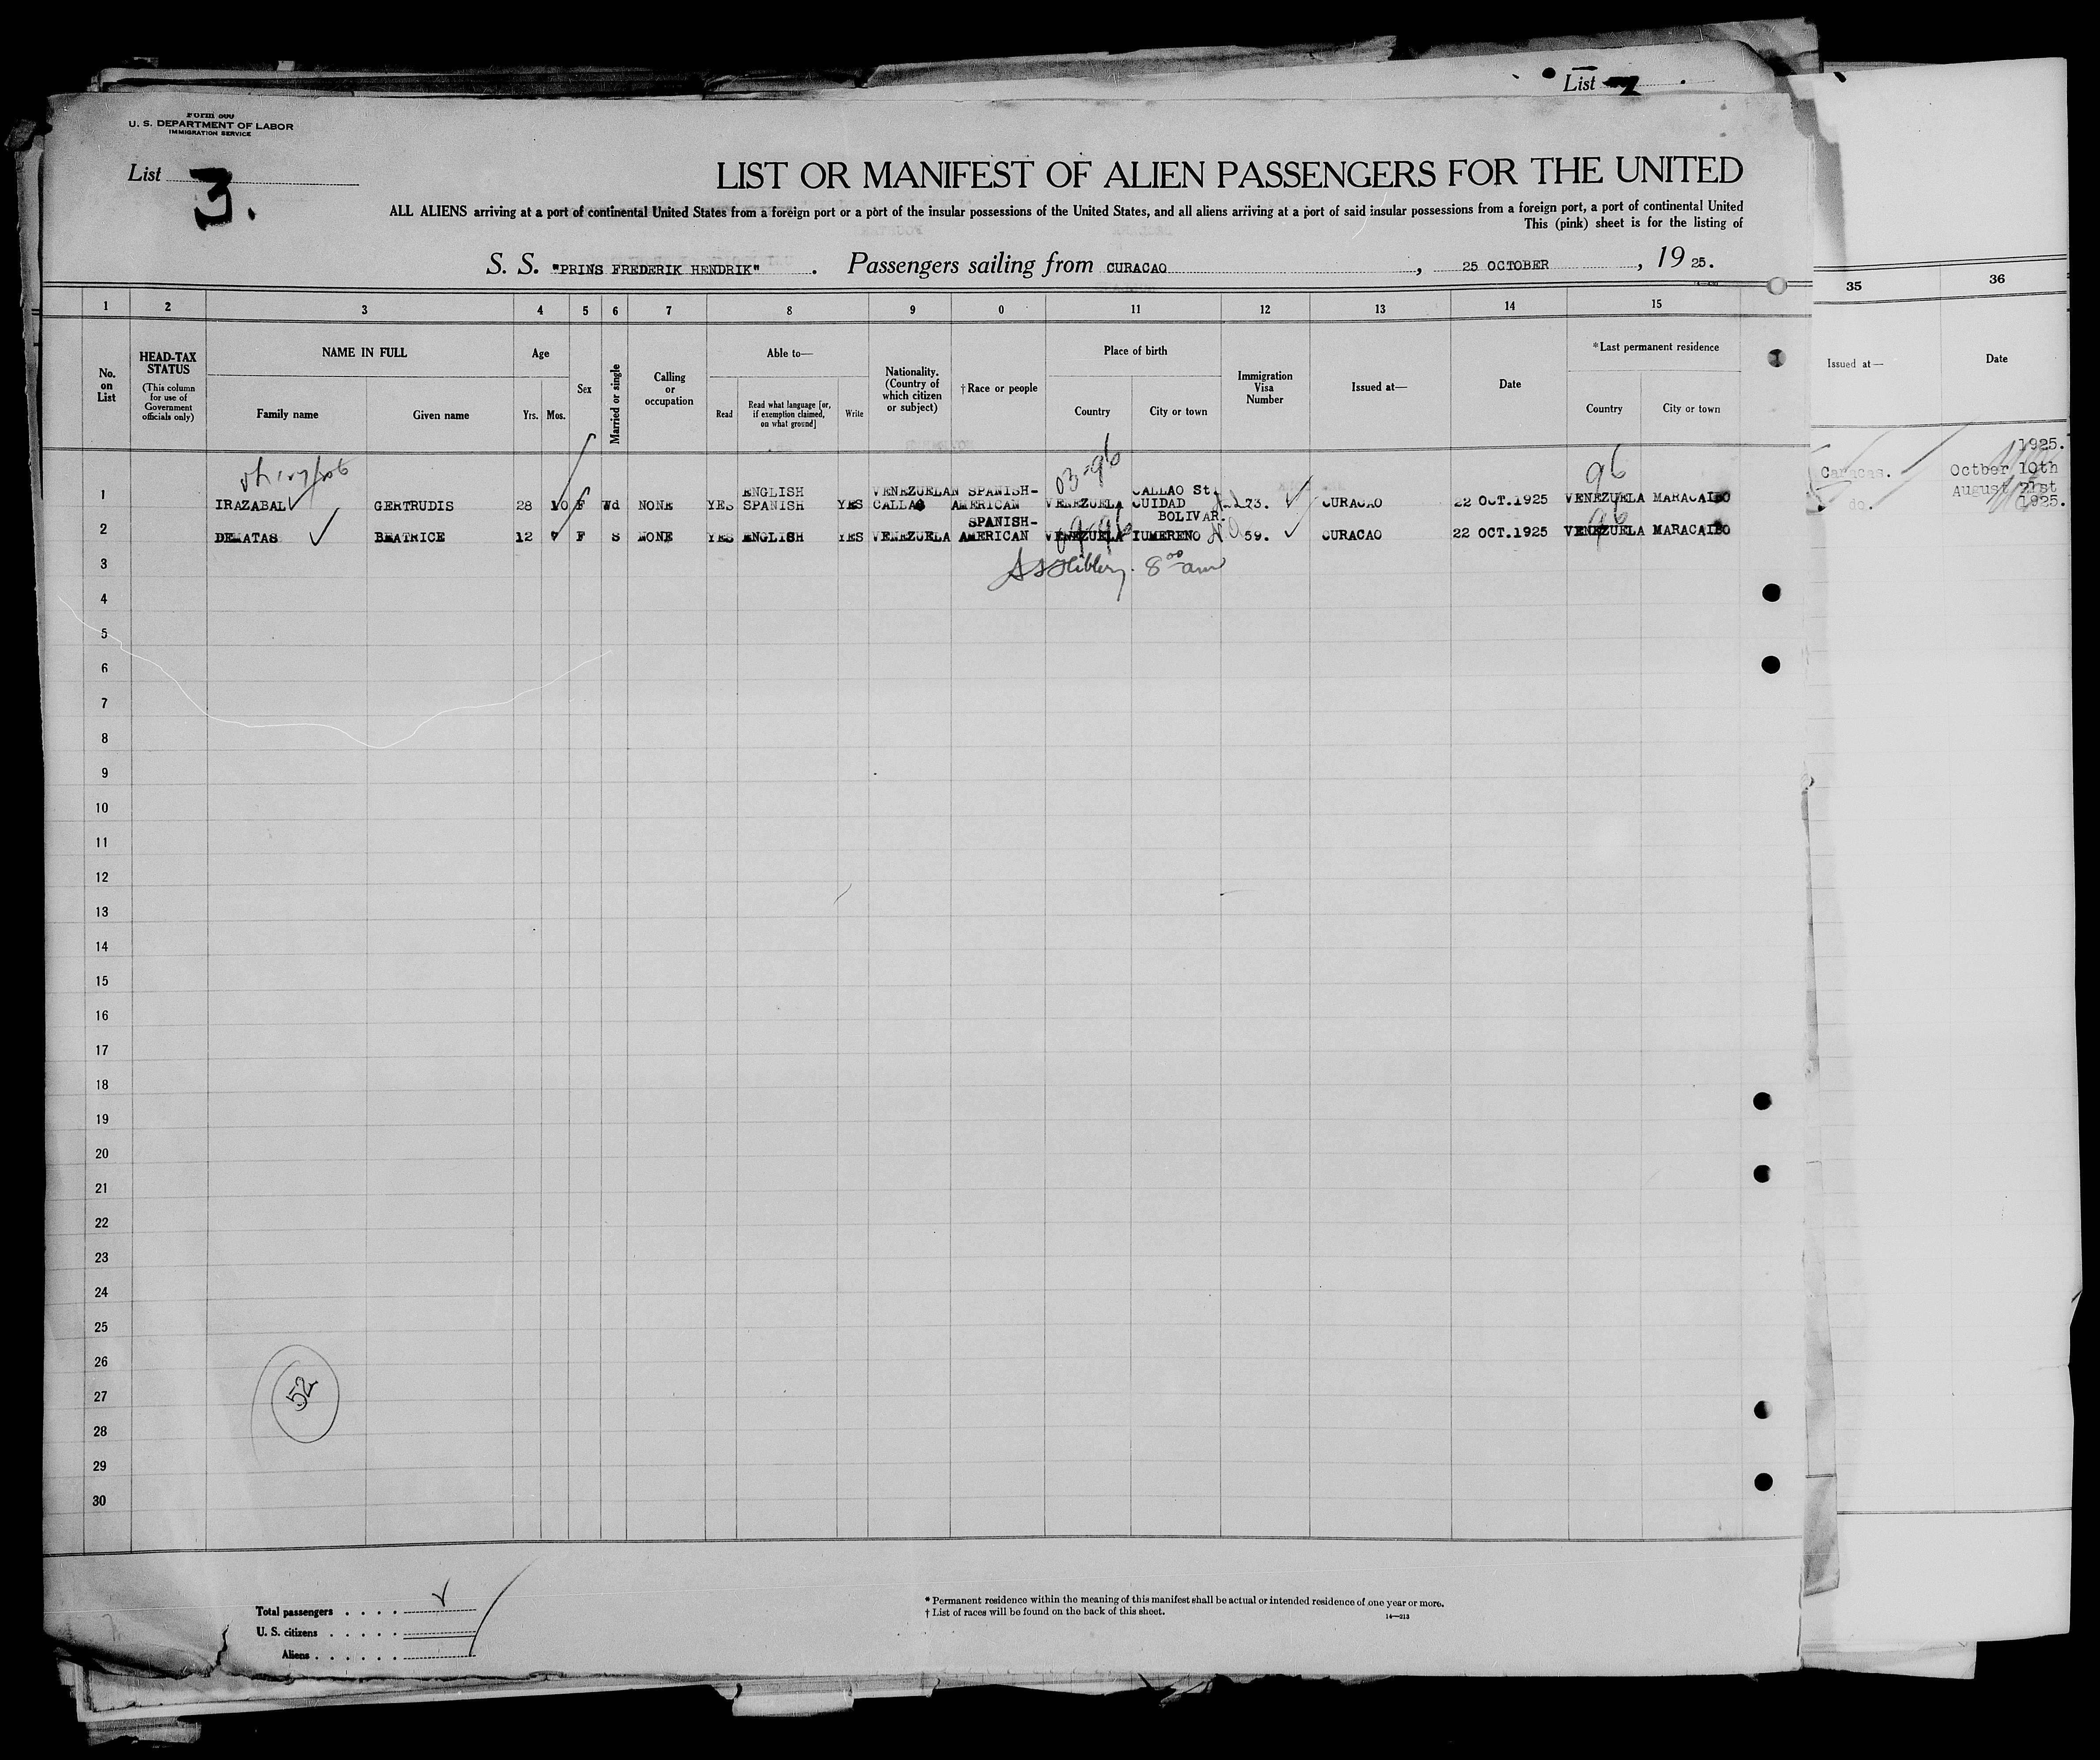 List
Form 500
U. S. DEPARTMENT OF LABOR
IMMIGRATION SERVICE
List 3.
LIST OR MANIFEST OF ALIEN PASSENGERS FOR THE UNITED
ALL ALIENS arriving at a port of continental United States from a foreign port or a port of the insular possessions of the United States, and all aliens arriving at a port of said insular possessions from a foreign port, a port of continental United
This (pink) sheet is for the listing of
S. S. "PRINS FREDERIK HENDRIK" . Passengers sailing from CURACAO , 25 OCTOBER , 19 25.
1 2 3 4 5 6 7 8 9 0 11 12 13 14 15 35 36
No. on List
HEAD-TAX STATUS
(This column for use of Government officials only)
NAME IN FULL
Family name Given name
Age
Yrs. Mos.
Sex
Married or single
Calling or occupation
Able to—
Read
Read what language [or, if exemption claimed, on what ground]
Write
Nationality. (Country of which citizen or subject)
† Race or people
Place of birth
Country City or town
Immigration Visa Number
Issued at—
Date
* Last permanent residence
Country City or town
Issued at—
Date
1925.
Caracas. Octber 10th
August 21st
do. 1925.
03-96 96
ENGLISH VENEZUELAN SPANISH- CALLAO St.
1 IRAZABAL GERTRUDIS 28 10 F Wd NONE YES SPANISH YES CALLAO AMERICAN VENEZUELA CUIDAD 73. CURACAO 22 OCT.1925 VENEZUELA MARACAIBO
SPANISH- BOLIVAR. 96
2 DEMATAS BEATRICE 12 F S NONE YES ENGLISH YES VENEZUELA AMERICAN VENEZUELA TUMERENO 59. CURACAO 22 OCT.1925 VENEZUELA MARACAIBO
3 8 00 am
4
5
6
7
8
9
10
11
12
13
14
15
16
17
18
19
20
21
22
23
24
25
26
52
27
28
29
30
Total passengers . . . .
U. S. citizens . . . . .
Aliens . . . . . .
* Permanent residence within the meaning of this manifest shall be actual or intended residence of one year or more.
† List of races will be found on the back of this sheet.
14—213